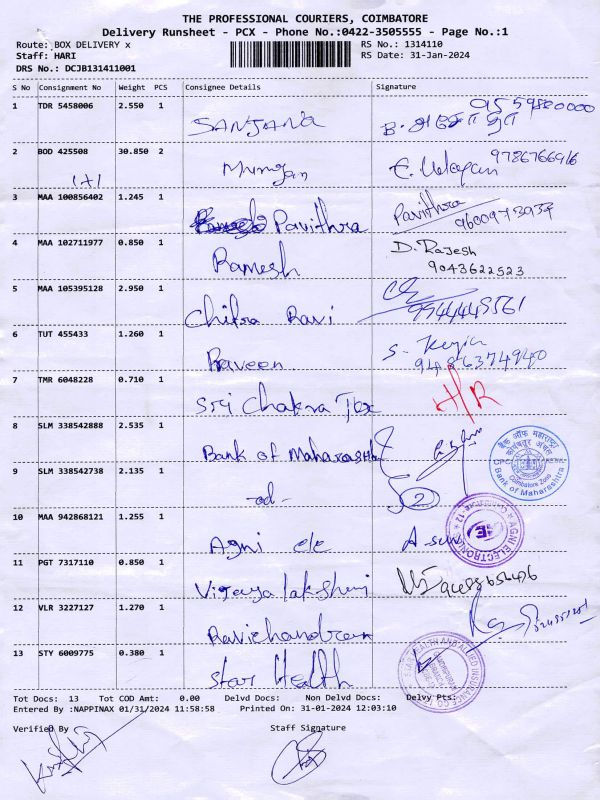 THE PROFESSIONAL COURIERS, COIMBATORE
Delivery Runsheet - PCX - Phone No.:0422-3505555 - Page No.:1
Route: BOX DELIVERY x RS No.: 1314110
Staff: HARI RS Date: 31-Jan-2024
DRS No.: DCJB131411001
S No Consignment No Weight PCS Consignee Details Signature
1 TDR 5458006 2.550 1 SANJANA
2 BOD 425508 30.850 2 9786766916
1+1
3 MAA 100856402 1.245 1 Pavithra Pavithra
9600973937
4 MAA 102711977 0.850 1 Ramesh D. Rajesh
9043622523
5 MAA 105395128 2.950 1 Chitra Ravi
6 TUT 455433 1.260 1 Praveen
9486374940
7 TMR 6048228 0.710 1 Sri Chakra Tex H/R
8 SLM 338542888 2.535 1 Bank of Maharasht
9 SLM 338542738 2.135 1 -do- 2
10 MAA 942868121 1.255 1 Agni ele
11 PGT 7317110 0.850 1 Vijayalakshmi
12 VLR 3227127 1.270 1 Ravichandran
13 STY 6009775 0.380 1 Star Health
बैंक ऑफ महाराष्ट्र
Coimbatore Zone
Bank of Maharashtra
AGNI ELECTRONICS
Tot Docs: 13 Tot COD Amt: 0.00 Delvd Docs: Non Delvd Docs: Delvy Pts:
Entered By :NAPPINAX 01/31/2024 11:58:58 Printed On: 31-01-2024 12:03:10
Verified By Staff Signature